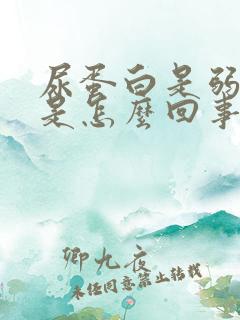 尿蛋白呈弱
是怎麼回事
卿九夜
未经同意禁止转载